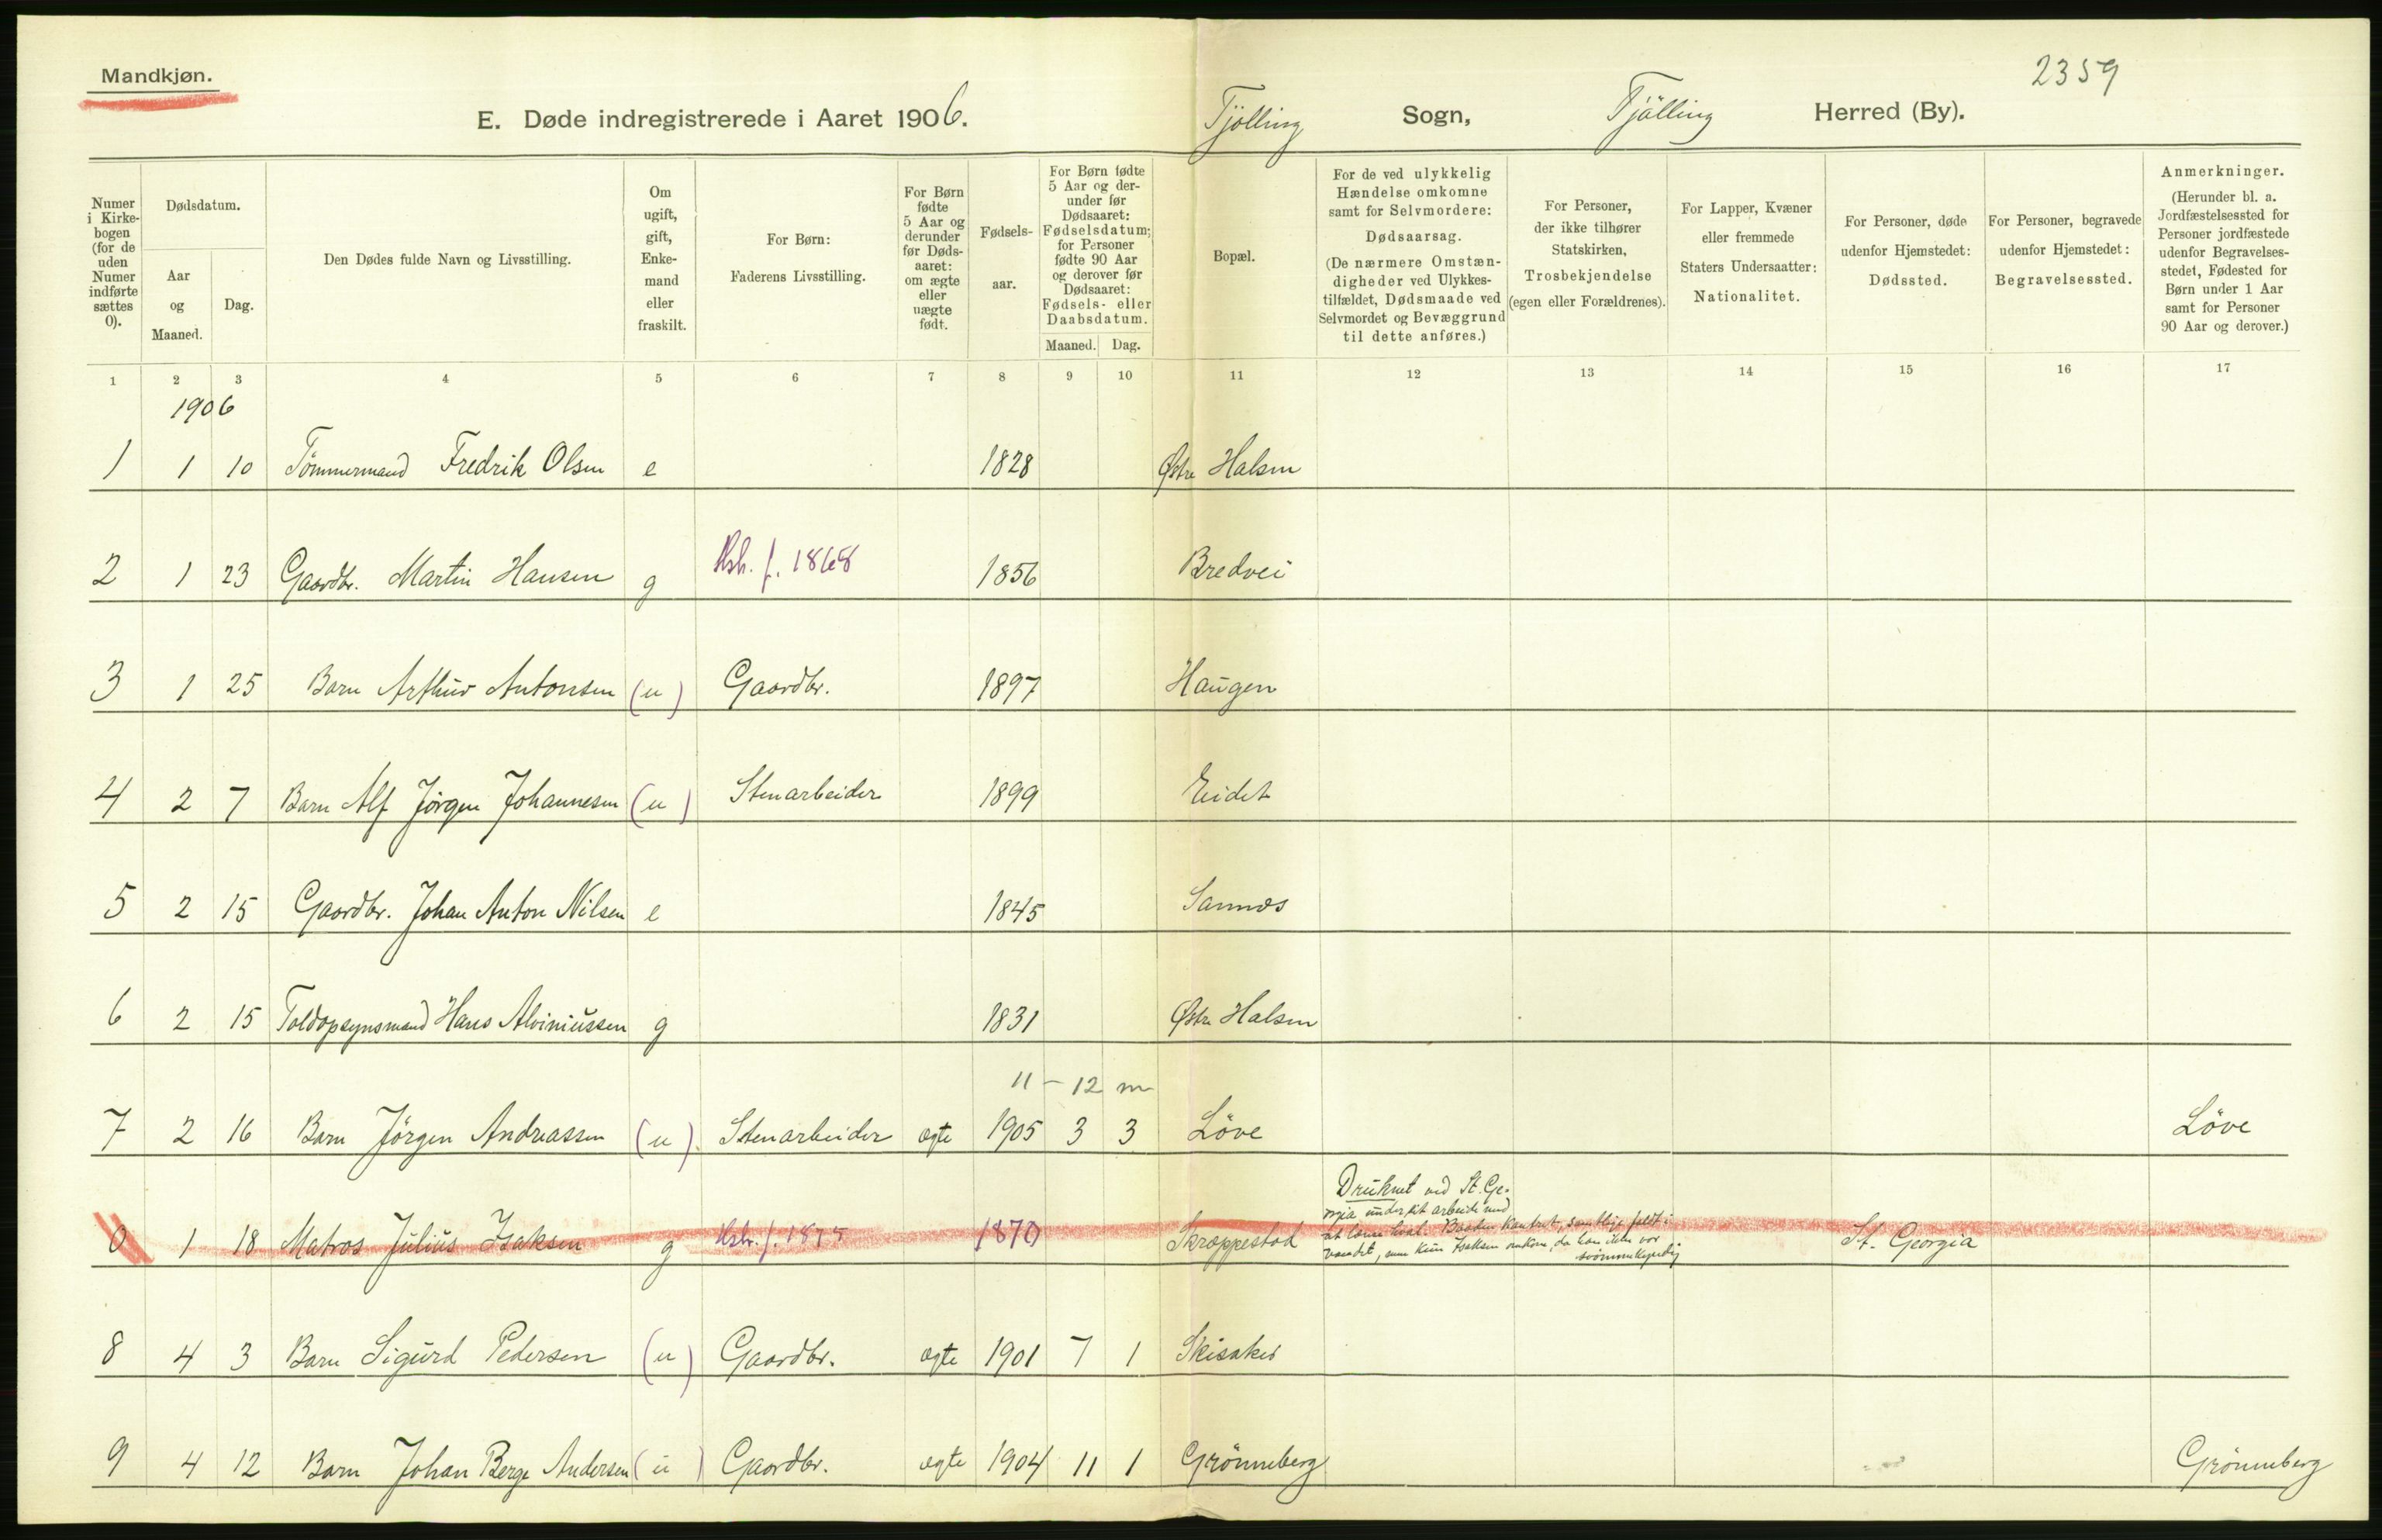 Mandkjøn.
2359
E. Døde indregistrerede i Aaret 1906. Tjölling Sogn, Tjölling Herred (By).
Numer i Kirke-bogen (for de uden Numer indførte sættes 0).
Dødsdatum.
Aar og Maaned.
Dag.
Den Dødes fulde Navn og Livsstilling.
Om ugift, gift, Enke-mand eller fraskilt.
For Børn: Faderens Livsstilling.
For Børn fødte 5 Aar og derunder før Døds-aaret: om ægte eller uægte født.
Fødsels-aar.
For Børn fødte 5 Aar og der-under før Dødsaaret: Fødselsdatum; for Personer fødte 90 Aar og derover før Dødsaaret: Fødsels- eller Daabsdatum.
Maaned. Dag.
Bopæl.
For de ved ulykkelig Hændelse omkomne samt for Selvmordere: Dødsaarsag. (De nærmere Omstæn-digheder ved Ulykkes-tilfældet, Dødsmaade ved Selvmordet og Bevæggrund til dette anføres.)
For Personer, der ikke tilhører Statskirken, Trosbekjendelse (egen eller Forældrenes).
For Lapper, Kvæner eller fremmede Staters Undersaatter: Nationalitet.
For Personer, døde udenfor Hjemstedet: Dødssted.
For Personer, begravede udenfor Hjemstedet: Begravelsessted.
Anmerkninger. (Herunder bl. a. Jordfæstelsessted for Personer jordfæstede udenfor Begravelses-stedet, Fødested for Børn under 1 Aar samt for Personer 90 Aar og derover.)
1 2 3 4 5 6 7 8 9 10 11 12 13 14 15 16 17
1906
1 1 10 Tömmermand Fredrik Olsen e 1828 Østre Halsen
2 1 23 Gaardbr. Martin Hansen g Hstr. f. 1868 1856 Bredvei
3 1 25 Barn Arthur Antonsen (u) Gaardbr. 1897 Haugen
4 2 7 Barn Alf Jörgen Johannesen (u) Stenarbeider 1899 Eidet
5 2 15 Gaardbr. Johan Anton Nilsen e 1845 Sannes
6 2 15 Toldopsynsmand Hans Alviniussen g 1831 Østre Halsen
11 - 12 m
7 2 16 Barn Jörgen Andreassen (u) Stenarbeider ægte 1905 3 3 Löve Löve
Druknet ved St. Ge-
orgia under sit arbeide med
0 1 18 Matros Julius Isaksen g Hstr. f. 1870 Skrappestad at Baaden kantret, samtlige faldt i St. Georgia
vandet, men kun Isaksen omkom, da han ikke var
svömmekyndig
8 4 3 Barn Sigurd Pedersen (u) Gaardbr. ægte 1901 7 1 Skisaker
9 4 12 Barn Johan Berge Andersen (u) Gaardbr. ægte 1904 11 1 Grönneberg Grönneberg